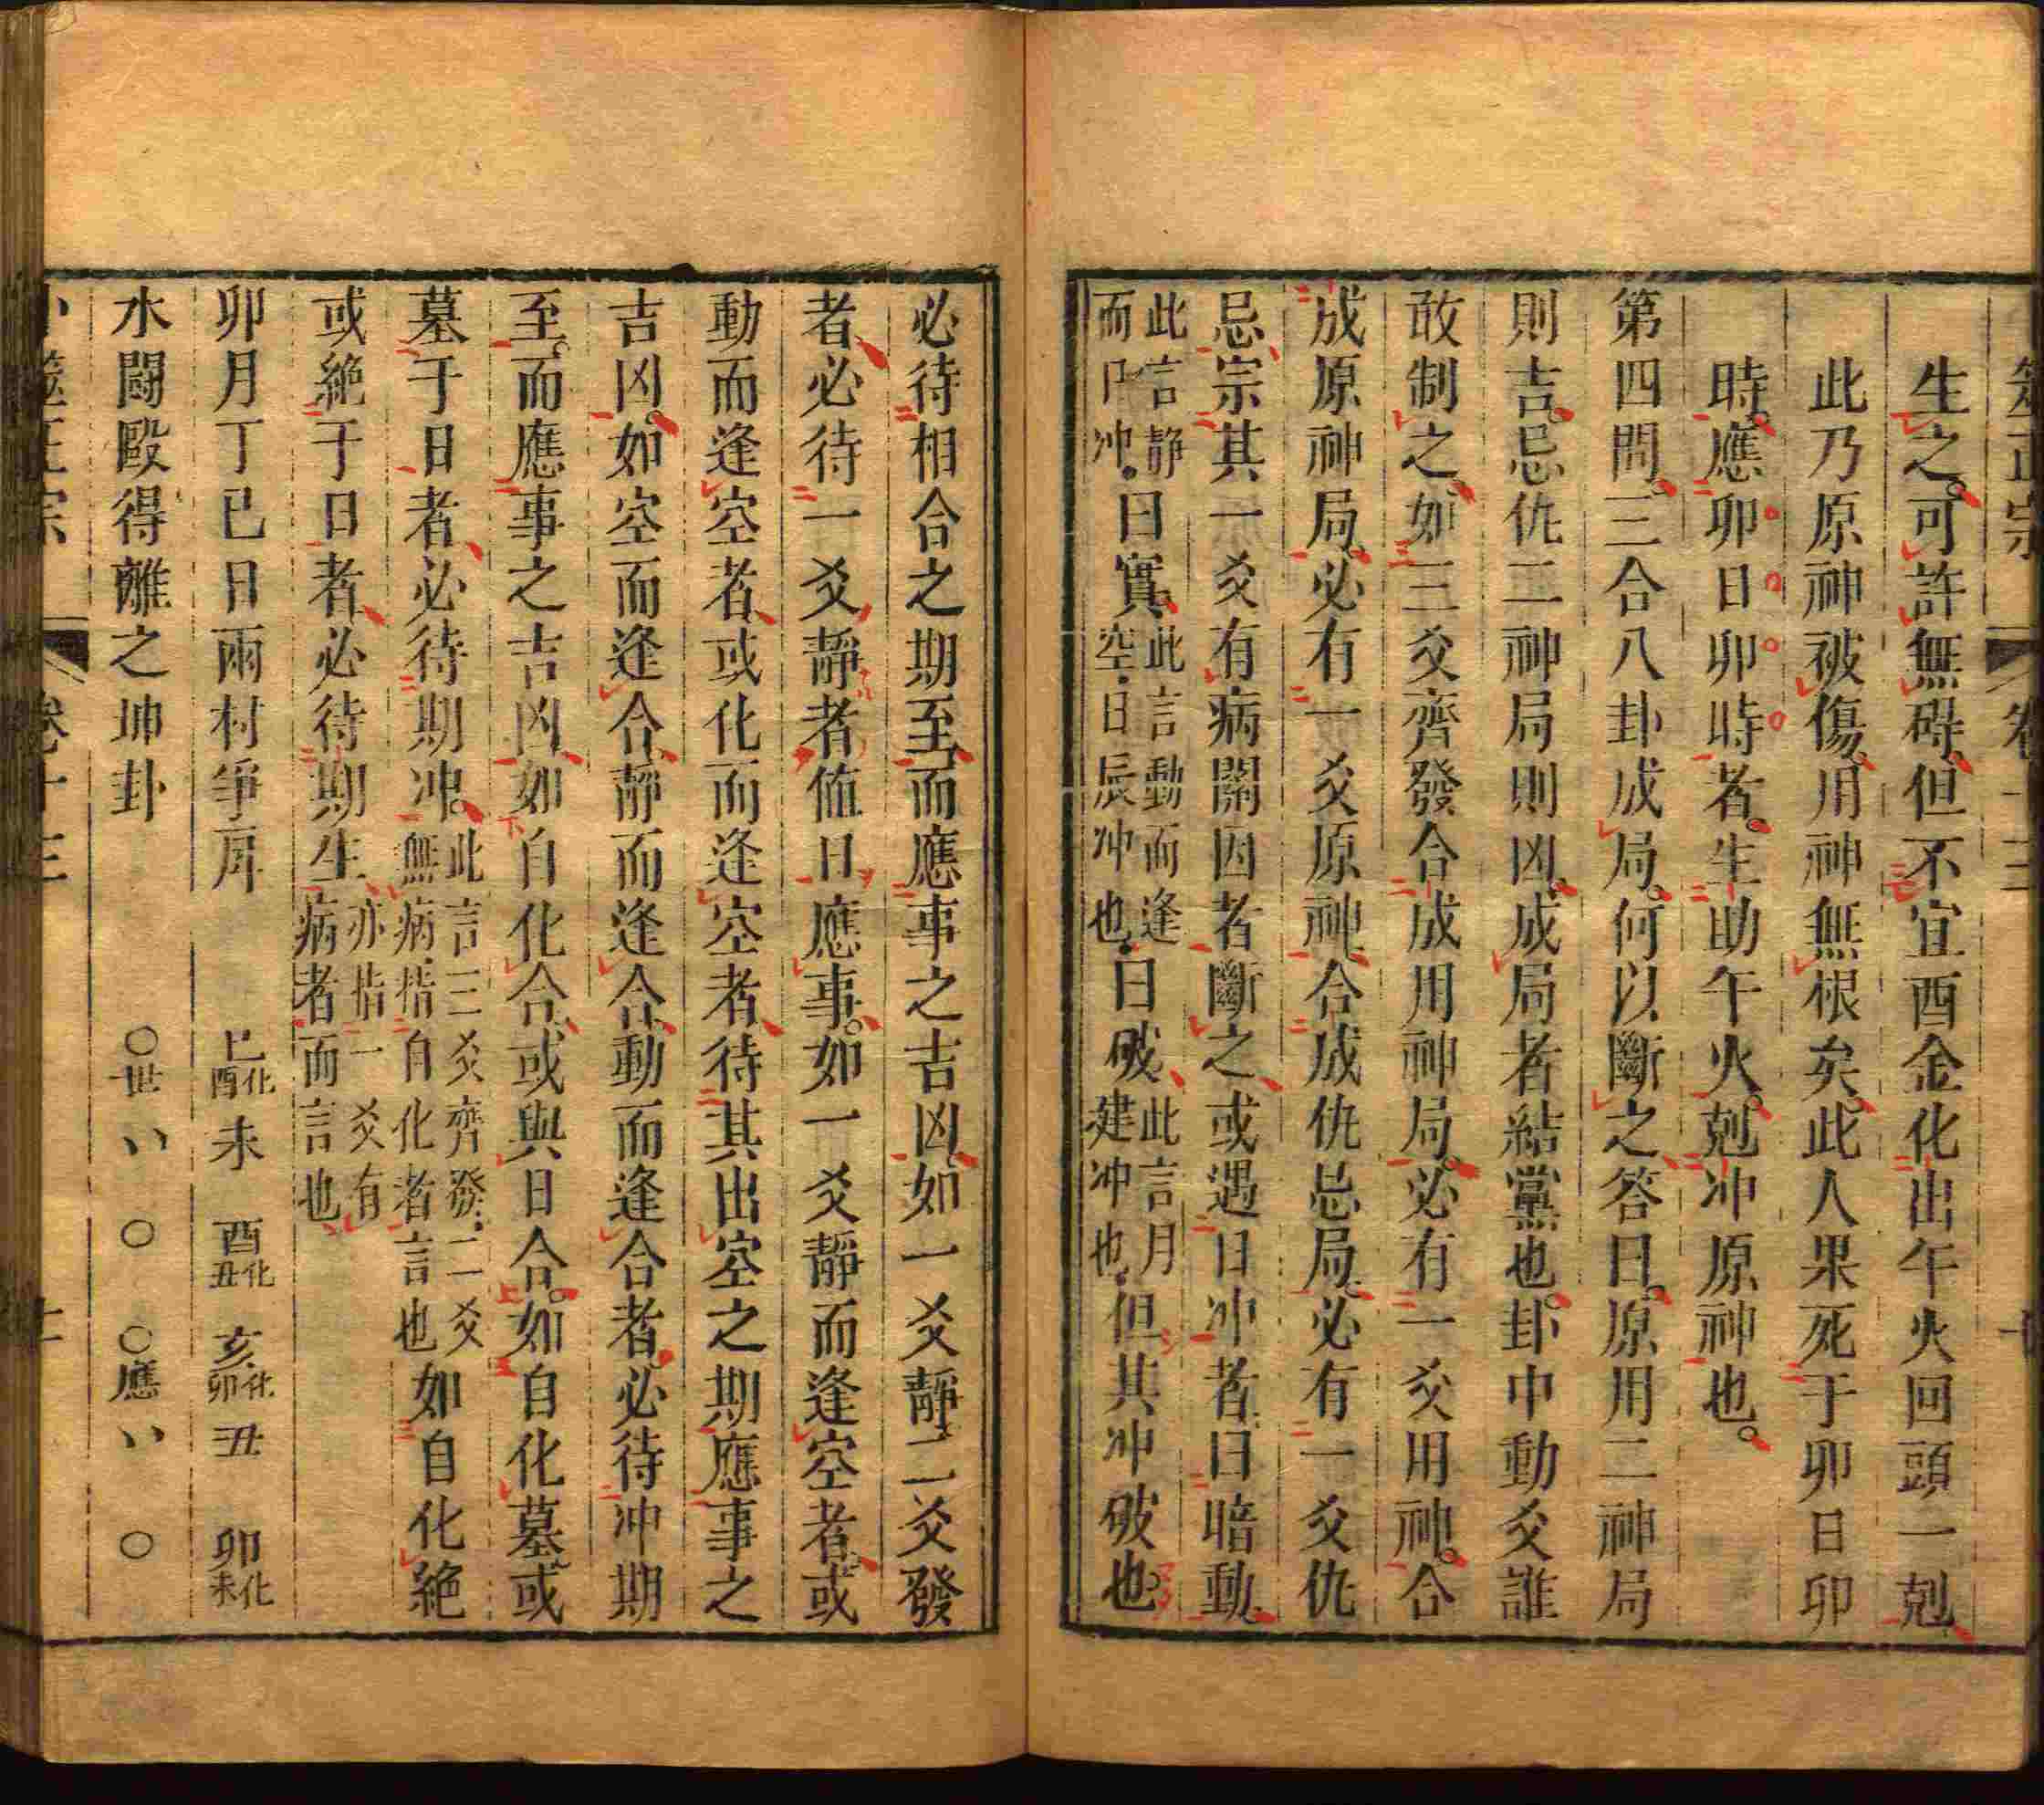 筮正宗 卷十三
生之可許無碍但不宜酉金化出午火回頭一剋
此乃原神被傷用神無根矣此人果死于卯日卯
時應卯日卯時者生助午火剋冲原神也
第四問三合八卦成局何以斷之答曰原用二神局
則吉忌仇二神局則凶成局者結黨也卦中動爻誰
敢制之如三爻齊發合成用神局必有一爻用神合
成原神局必有一爻原神合成仇忌局必有一爻仇
忌宗其一爻有病關因者斷之或遇日冲者曰暗動
此言靜而日冲曰實此言動而逢空日辰冲也曰破此言月建冲也但其冲破也
必待相合之期至而應事之吉凶如一爻靜二爻發
者必待一爻靜者值日應事如一爻靜而逢空者或
動而逢空者或化而逢空者待其出空之期應事之
吉凶如空而逢合靜而逢合動而逢合者必待冲期
至而應事之吉凶如自化合或與日合如自化墓或
墓于日者必待期冲此言三爻齊發二爻無病指自化者言也如自化絕
或絕于日者必待期生亦指一爻有病者而言也
卯月丁巳日兩村爭戽 巳化酉 未 酉化丑 亥化卯 丑 卯化未
水鬪毆得離之坤卦 〇世 〃 〇 〇應 〃 〇
卜筮正宗 卷十三